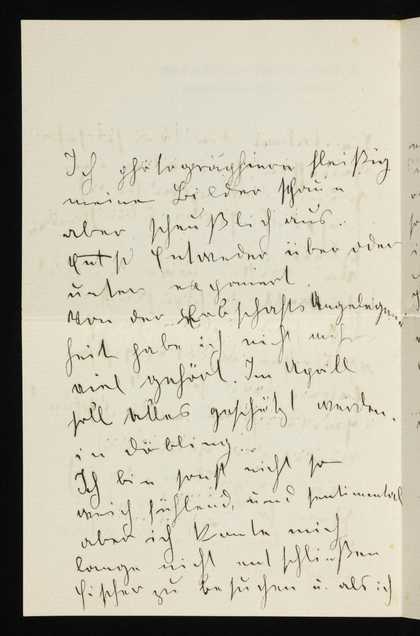 Ich photographiere fleißig
meine Bilder schauen
aber scheußlich aus.
Entweder über oder
unter exponiert.
Von der Erbschafts Angelegen=
heit habe ich nicht mehr
viel gehört. Im April
soll alles geschätzt werden.
in Döbling.
Ich bin sonst nicht so
weich fühlend, und sentimental
aber ich konte mich
lange nicht entschließen
Fischer zu besuchen u. als ich